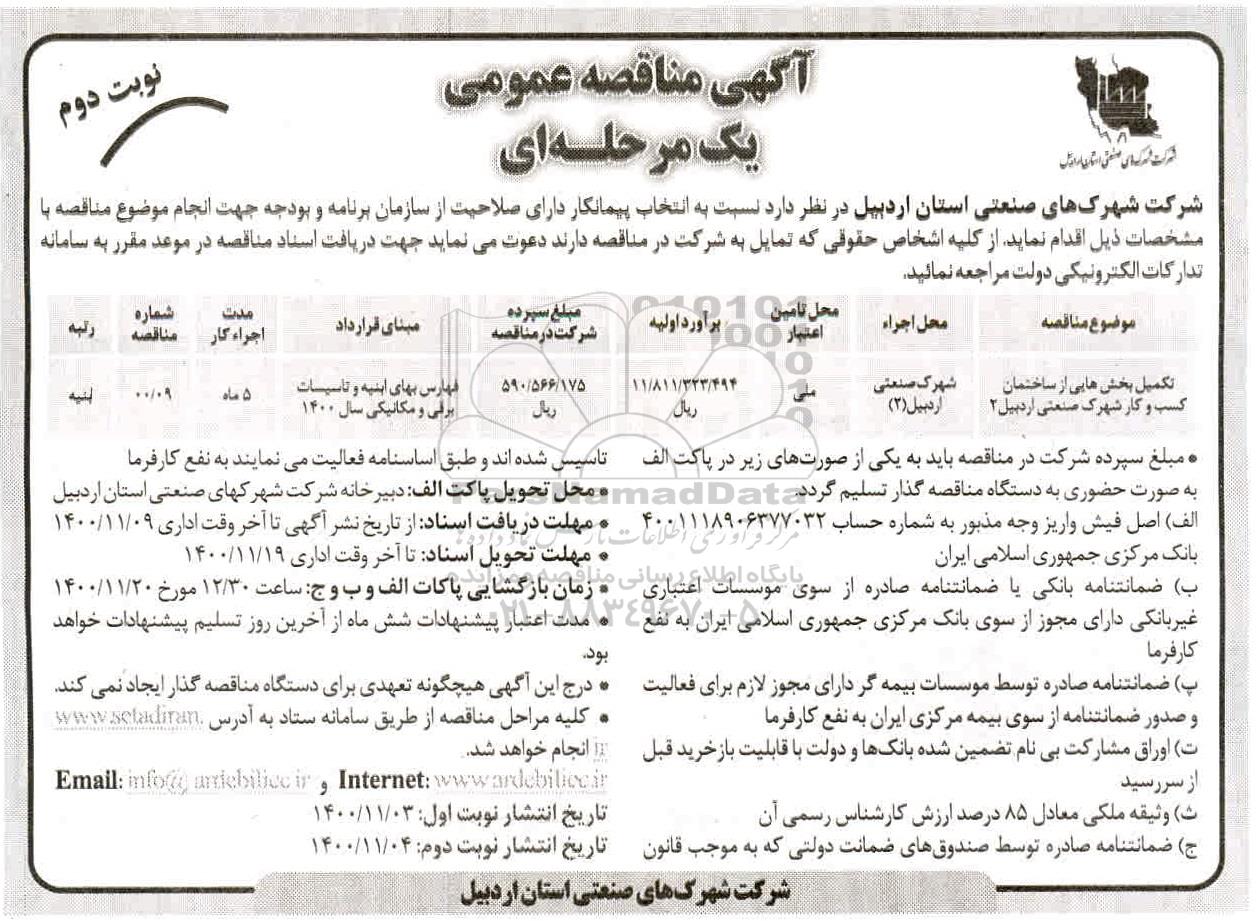 نوبت دوم
آگهی مناقصه عمومی
یک مرحله‌ای
شرکت شهرک‌های صنعتی استان اردبیل
شرکت شهرک‌های صنعتی استان اردبیل در نظر دارد نسبت به انتخاب پیمانکار دارای صلاحیت از سازمان برنامه و بودجه جهت انجام موضوع مناقصه با
مشخصات ذیل اقدام نماید. از کلیه اشخاص حقوقی که تمایل به شرکت در مناقصه دارند دعوت می نماید جهت دریافت اسناد مناقصه در موعد مقرر به سامانه
تدارکات الکترونیکی دولت مراجعه نمائید.
موضوع مناقصه محل اجراء محل تامین اعتبار برآورد اولیه مبلغ سپرده شرکت در مناقصه مبنای قرارداد مدت اجراء کار شماره مناقصه رتبه
تکمیل بخش هایی از ساختمان کسب و کار شهرک صنعتی اردبیل۲ شهرک صنعتی اردبیل(۲) ملی ۱۱/۸۱۱/۳۲۳/۴۹۴ ریال ۵۹۰/۵۶۶/۱۷۵ ریال فهارس بهای ابنیه و تاسیسات برقی و مکانیکی سال ۱۴۰۰ ۵ ماه ۰۰/۰۹ ابنیه
• مبلغ سپرده شرکت در مناقصه باید به یکی از صورت‌های زیر در پاکت الف
به صورت حضوری به دستگاه مناقصه گذار تسلیم گردد.
الف) اصل فیش واریز وجه مذبور به شماره حساب ۴۰۰۱۱۱۸۹۰۶۳۷۷۰۳۲
بانک مرکزی جمهوری اسلامی ایران
ب) ضمانتنامه بانکی یا ضمانتنامه صادره از سوی موسسات اعتباری
غیربانکی دارای مجوز از سوی بانک مرکزی جمهوری اسلامی ایران به نفع
کارفرما
پ) ضمانتنامه صادره توسط موسسات بیمه گر دارای مجوز لازم برای فعالیت
و صدور ضمانتنامه از سوی بیمه مرکزی ایران به نفع کارفرما
ت) اوراق مشارکت بی نام تضمین شده بانک‌ها و دولت با قابلیت بازخرید قبل
از سررسید
ث) وثیقه ملکی معادل ۸۵ درصد ارزش کارشناس رسمی آن
ج) ضمانتنامه صادره توسط صندوق‌های ضمانت دولتی که به موجب قانون
تاسیس شده اند و طبق اساسنامه فعالیت می نمایند به نفع کارفرما
• محل تحویل پاکت الف: دبیرخانه شرکت شهرکهای صنعتی استان اردبیل
• مهلت دریافت اسناد: از تاریخ نشر آگهی تا آخر وقت اداری ۱۴۰۰/۱۱/۰۹
• مهلت تحویل اسناد: تا آخر وقت اداری ۱۴۰۰/۱۱/۱۹
• زمان بازگشایی پاکات الف و ب و ج: ساعت ۱۲/۳۰ مورخ ۱۴۰۰/۱۱/۲۰
• مدت اعتبار پیشنهادات شش ماه از آخرین روز تسلیم پیشنهادات خواهد
بود.
• درج این آگهی هیچگونه تعهدی برای دستگاه مناقصه گذار ایجاد نمی کند.
• کلیه مراحل مناقصه از طریق سامانه ستاد به آدرس www.setadiran.
ir انجام خواهد شد.
Internet: www.ardebiliec.ir و Email: info@ardebiliec.ir
تاریخ انتشار نوبت اول: ۱۴۰۰/۱۱/۰۳
تاریخ انتشار نوبت دوم: ۱۴۰۰/۱۱/۰۴
شرکت شهرک‌های صنعتی استان اردبیل
پایگاه اطلاع رسانی مناقصه و مزایده
۰۲۱-۸۸۳۴۹۶۷۰-۵